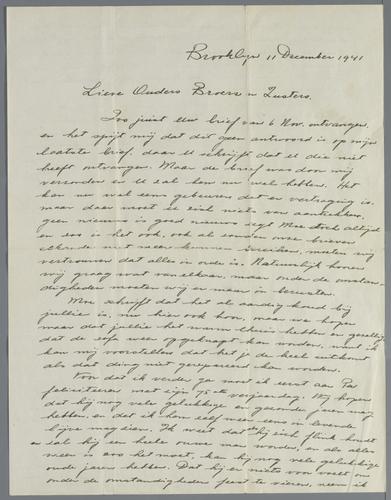 Brooklyn 11 December 1941
Lieve Ouders Broers en Zusters.
Zoo juist Uw brief van 6 Nov. ontvangen
en het spijt mij dat dit geen antwoord is op mijn
laatste brief, daar U schrijft dat U die niet
heeft ontvangen. Maar de brief was door mij
verzonden en U zal hem nu wel hebben. Het
kan nu wel eens gebeuren dat er vertraging is
maar daar moet U zich niets van aantrekken,
geen nieuws is goed nieuws zegt Moe toch altijd
en zoo is het ook, ook al zouden onze brieven
elkander niet meer kunnen bereiken, moeten wij
vertrouwen dat alles in orde is. Natuurlijk hooren
wij graag wat van elkaar, maar onder de omstan-
digheden moeten wij er maar in berusten.
Moe schrijft dat het al aardig koud bij
jullie is, nu hier ook hoor, maar we hopen
maar dat jullie het warm thuis hebben en gezellig
dat de sofa weer opgeknapt kan worden, want ik
kan mij voorstellen dat het je de keel uitkomt
als dat ding niet gerepareerd kan worden.
Voor dat ik verder ga moet ik eerst aan Pa
feliciteeren met zijn 75ste verjaardag. Wij hopen
dat hij nog vele gelukkige en gezonde jaren mag
hebben, en dat ik hem zelf weer eens in levende
lijve mag zien. Ik weet dat hij zich flink houdt
en zal hij een heele ouwe man worden, en als alles
weer is zoo het moet, kan hij nog vele gelukkige
oude jaren hebben. Dat hij er niets voor voelt om
onder de omstandigheden feest te vieren, neem ik